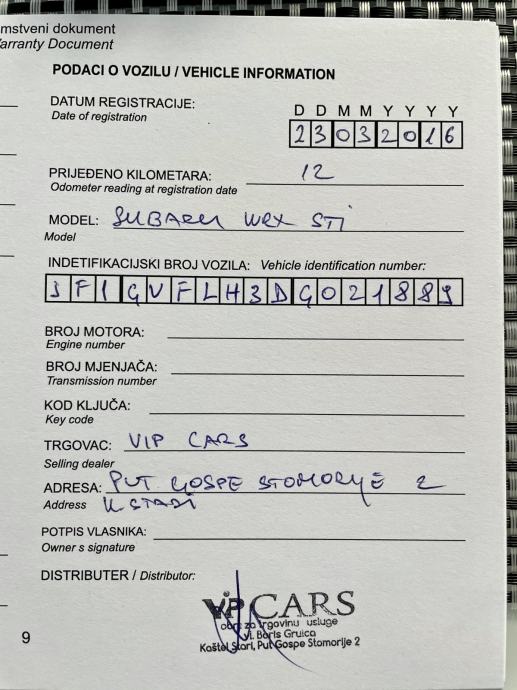 mstveni dokument
arranty Document
PODACI O VOZILU / VEHICLE INFORMATION
DATUM REGISTRACIJE:
Date of registration
D D M M Y Y Y Y
23032016
PRIJEĐENO KILOMETARA: 12
Odometer reading at registration date
MODEL: SUBARU WRX STI
Model
INDETIFIKACIJSKI BROJ VOZILA: Vehicle identification number:
JF1GVFLH3DG021889
BROJ MOTORA:
Engine number
BROJ MJENJAČA:
Transmission number
KOD KLJUČA:
Key code
TRGOVAC: VIP CARS
Selling dealer
ADRESA: PUT GOSPE STOMORIJE 2
Address K STARI
POTPIS VLASNIKA:
Owner s signature
DISTRIBUTER / Distributor:
VIP CARS
obrt za trgovinu i usluge
vl. Boris Gruica
Kaštel Stari, Put Gospe Stomorije 2
9